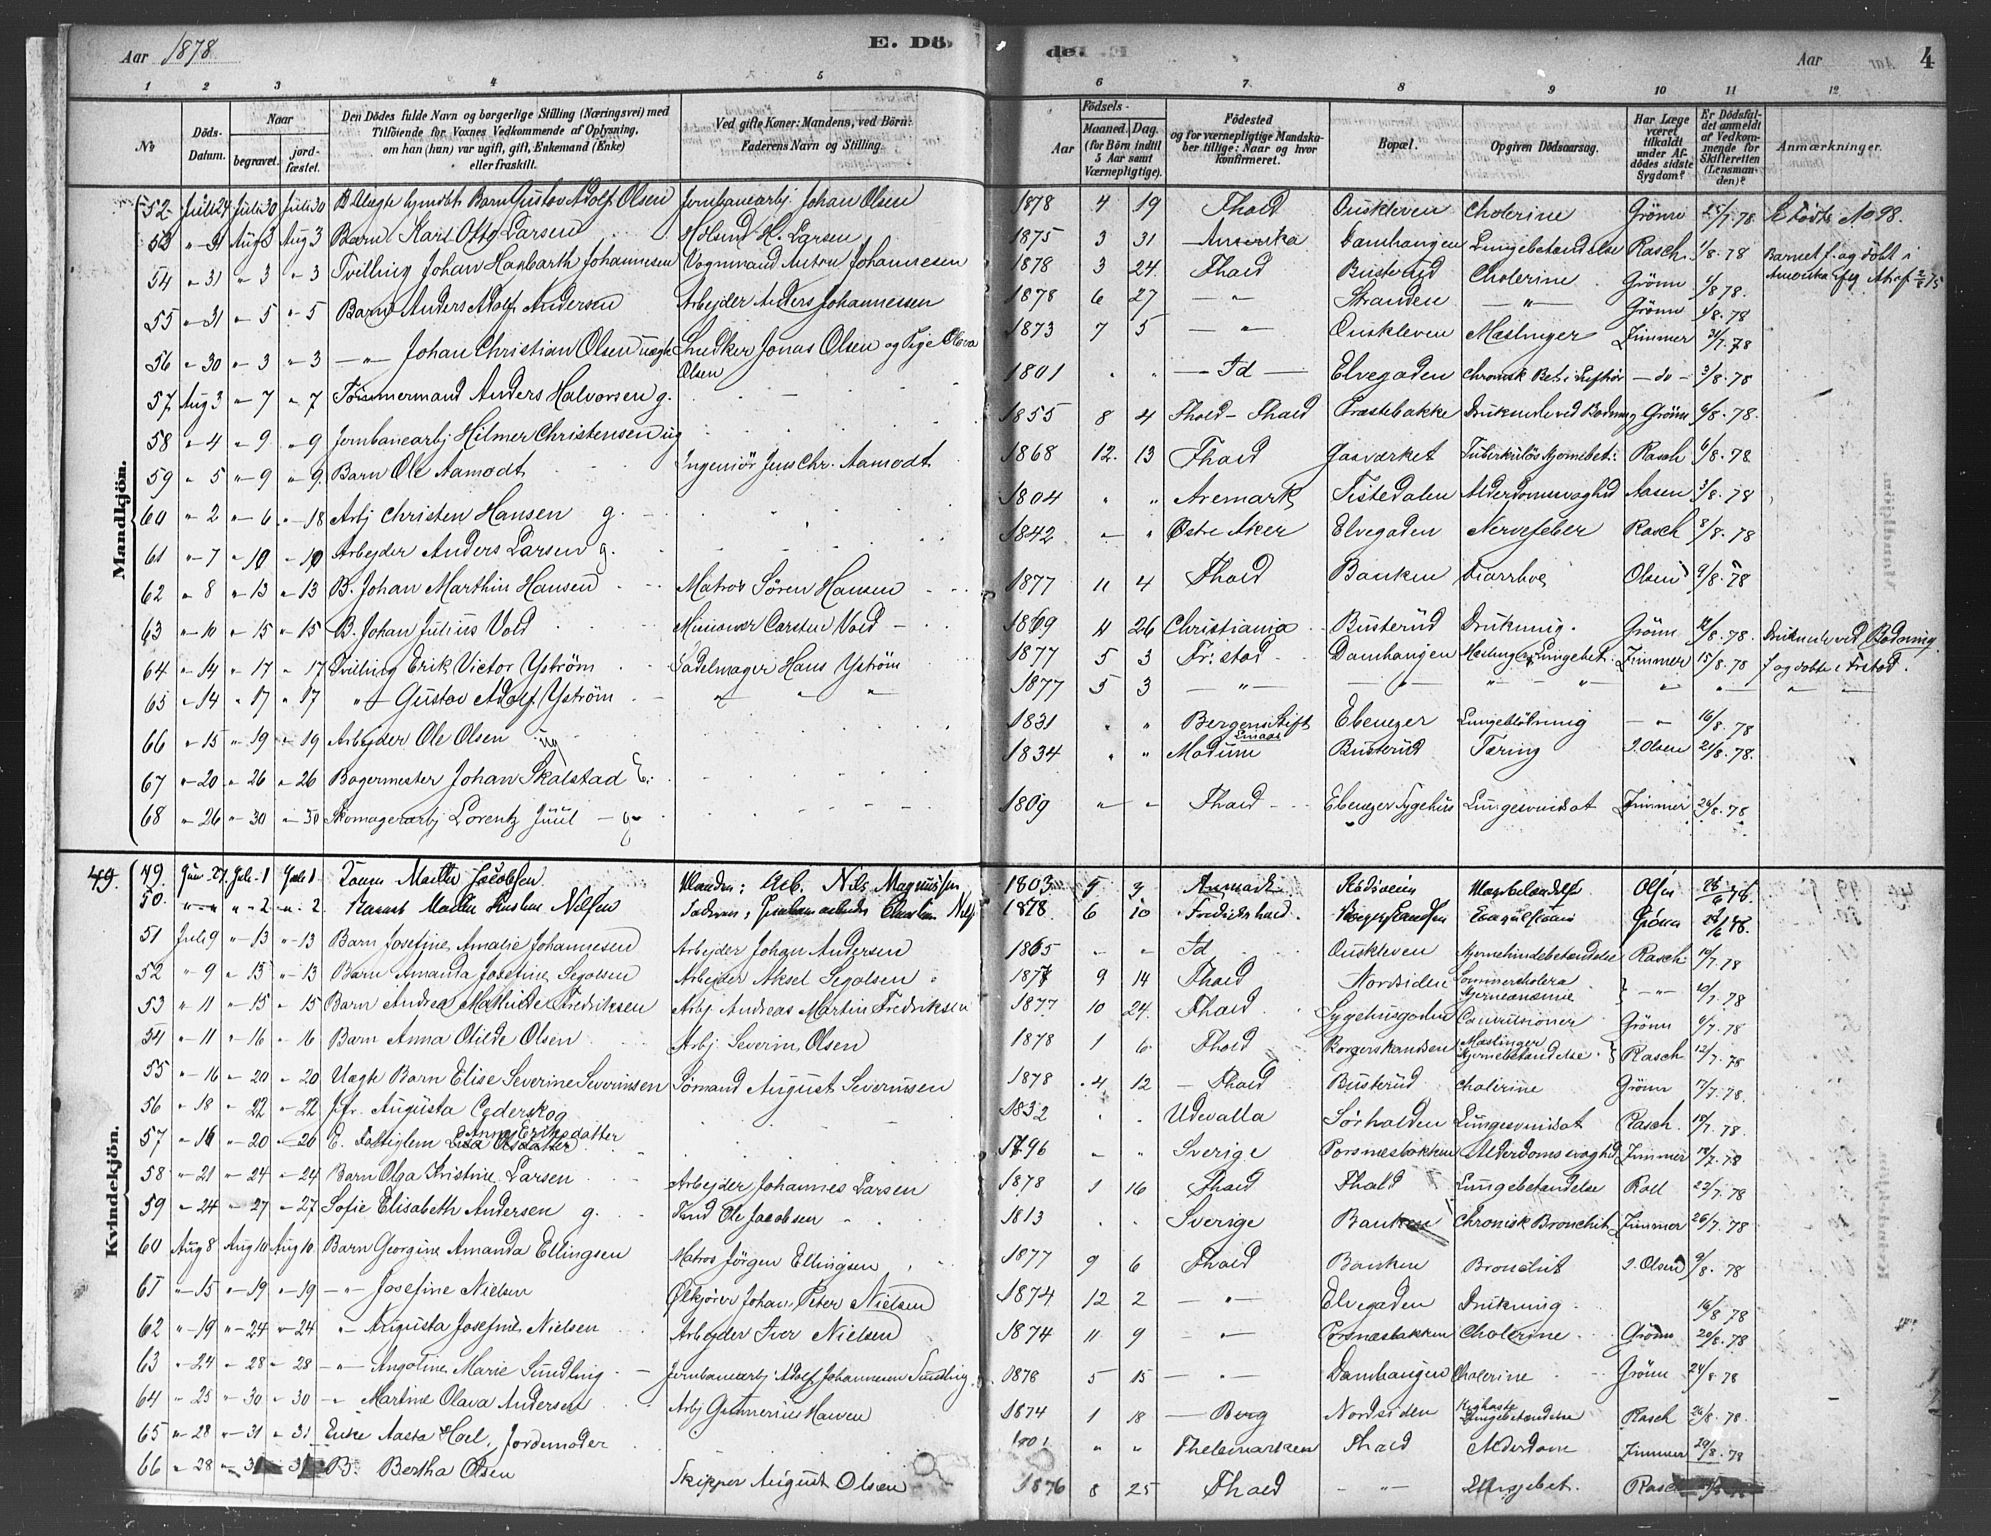 Aar 1878
E. Dö-
de. E.
Aar
4
1 2 3 4 5 6 7 8 9 10 11 12
No
Döds-Datum.
Naar
begravet.
jord-fæstet.
Den Dödes fulde Navn og borgerlige Stilling (Næringsvei) med
Tilföiende for Voxnes Vedkommende af Oplysning,
om han (hun) var ugift, gift, Enkemand (Enke)
eller fraskilt.
Ved gifte Koner: Mandens, ved Börn:
Faderens Navn og Stilling.
Födsels-
Aar
Maaned. Dag.
(for Börn indtil
5 Aar samt
Værnepligtige).
Födested
og for værnepligtige Mandska-
ber tillige: Naar og hvor
konfirmeret.
Bopæl.
Opgiven Dödsaarsag.
Har Læge
været
tilkaldt
under Af-
dödes sidste
Sygdom?
Er Dödsfal-
det anmeldt
af Vedkom-
mende for
Skifteretten
(Lensman-
den)?
Anmærkninger.
Mandkjön.
52 Juli 24 Juli 30 Juli 30 B. Uægte Barn Gustav Adolf Olsen Jernbanearbj. Johan Olsen 1878 4 19 Fhald Ouskleven Cholerine Grönn 25/7 78 No 98.
53 " 31 Aug 3 Aug 3 Barn Karl Otto Larsen H. Larsen 1875 3 31 Amerika Damhaugen Lungebetændelse Rasch 1/8 78 Barnet f. og döbt i Amerika
54 " 31 " 3 " 3 Tvilling Johan Hagbarth Johannesen Vognmand Anton Johannesen 1878 3 24 Fhald Busterud Cholerine Grönn 1/8 78
55 " 31 " 5 " 5 Barn Anders Adolf Andersen Arbejder Anders Johannessen 1878 6 27 — " — Stranden — " — Grönn 1/8 78
56 " 30 " 3 " 3 — " — Johan Christian Olsen uægte Snedker Jonas Olsen og Pige Olava Olsen 1873 7 5 — " — Ouskleven Meslinger Zimmer 31/7 78
57 Aug 3 " 7 " 7 Tömmermand Anders Halvorsen g. 1801 Id Elvegaden Chronisk Bet. i Luftrör — do — 3/8 78
58 " 4 " 9 " 9 Jernbanearbj Hilmer Christensen ug 1855 8 4 Fhald - Fhald Præstebakke Druknede ved Badning Grönn 6/8 78
59 " 5 " 9 " 9 Barn Ole Aamodt Ingeniör Jens Chr. Aamodt 1868 12 13 Fhald Gasværket Tuberkulös Hjernebet: Rasch 6/8 78
60 " 2 " 6 " 18 Arbj Christen Hansen g. 1804 Aremark Tistedalen Alderdomssvaghed Aasen 3/8 78
61 " 7 " 10 " 10 Arbejder Anders Larsen g. 1842 Østre Aker Elvegaden Nervefeber Rasch 8/8 78
62 " 8 " 13 " 13 B. Johan Marthin Hansen Matros Sören Hansen 1877 11 4 Fhald Banken Diarrhoe Olsen 9/8 78
63 " 10 " 15 " 15 B. Johan Julius Vold Carsten Vold 1869 4 26 Christiania Busterud Drukning Grönn 12/8 78 Druknede ved Badning.
64 " 14 " 17 " 17 Tvilling Erik Victor Yström Sadelmager Hans Yström 1877 5 3 Fr:stad Damhaugen Meslinger Lungebet: Zimmer 15/8 78 f. og döbte i Frstad.
65 " 14 " 17 " 17 " — Gustav Adolf Yström " " " 1877 5 3 — " — — " — " " " " " "
66 " 15 " 19 " 19 Arbejder Ole Olsen ug 1831 Bergens Stift Ebenezer Lungeblödning — " 16/8 78
67 " 20 " 26 " 26 Bagermester Johan Skalstad E: 1834 Modum Busterud Tæring J. Olsen 21/8 78
68 " 26 " 30 " 30 Skomagerarbj Lorentz Juul 1809 Fhald Ebenezer Sygehus Lungesvindsot Zimmer 26/8 78
Kvindekjön.
49. 49. Juni 27 Juli 1 Juli 1 Jacobsen Manden: Arb. Nils Magnussen 1803 5 9 Olsen 28/6 78
50. " " " 2 " 2 Nilsen Faderen: 1878 6 10 Fredrikshald Grönn 28/6 78
51 Juli 9 " 13 " 13 Barn Josefine Amalie Johannesen Arbejder Johan Andersen 1865 Id Ouskleven Hjernehindebetændelse Rasch 10/7 78
52 " 9 " 13 " 13 Barn Amanda Josefine Segolsen Arbejder Aksel Segolsen 1877 9 14 Fhald Nordsiden Sommercholera Hjerneanæmie — " — 10/7 78
53 " 11 " 15 " 15 Barn Andrea Mathilde Fredriksen Arbj. Andreas Martin Fredriksen 1877 10 24 Fhald Sygehusgaden Convulsioner Grönn 6/7 78
54 " 11 " 16 " 16 Barn Anna Otilde Olsen Arbj Severin Olsen 1878 1 6 Fhald Borgerskandsen Meslinger Hjernebetændelse Rasch 12/7 78
55 " 16 " 20 " 20 Uægte Barn Elise Severine Severinsen Sömand August Severinsen 1878 4 12 Fhald Busterud Cholerine Grönn 17/7 78
56 " 18 " 22 " 22 Jfr. Augusta Cederskog 1832 Udevalla Sörhalden Lungesvindsot Rasch 18/7 78
57 " 16 " 20 " 20 E. Fattiglem Anne Eriksdatter 1796 Sverige Porsnæsbakken Alderdomssvaghed Zimmer 18/7 78
58 " 21 " 24 " 24 Barn Olga Kristine Larsen Arbejder Johannes Larsen 1878 1 16 Fhald Fhald Lungebetændelse Roll 22/7 78
59 " 24 " 27 " 27 Sofie Elisabeth Andersen g. Ole Jacobsen 1813 Sverige Banken Chronisk Bronchit Zimmer 26/7 78
60 Aug 8 Aug 10 Aug 10 Barn Georgine Amanda Ellingsen Matros Jörgen Ellingsen 1877 9 6 Fhald Banken Bronchit J. Olsen 9/8 78
61 " 15 " 19 " 19 — " — Josefine Nielsen Ølkjörer Johan Peter Nielsen 1874 12 2 — " — Elvegaden Drukning 16/8 78
62 " 19 " 24 " 24 " Augusta Josefine Nielsen Arbejder Iver Nielsen 1874 11 9 — " — Porsnæsbakken Cholerine Grönn 20/8 78
63 " 24 " 28 " 28 — " — Angoline Marie Sundling Jernbanearbj. Adolf Johannesen Sundling 1878 5 15 — " — Damhaugen Cholerine Grönn 24/8 78
64 " 25 " 30 " 30 " Martine Olava Andersen Arbj Gunnerius Hansen 1874 1 18 Berg Nordsiden Kighoste Lungebetændelse Rasch 26/8 78
65 " 28 " 31 " 31 Enke Aasta Hoel, Jordemoder 1801 " " Thelemarken Fhald Alderdom Zimmer 29/8 78
66 " 28 " 31 " 31 B. Bertha Olsen Skipper August Olsen 1876 8 25 Fhald — " — Rasch